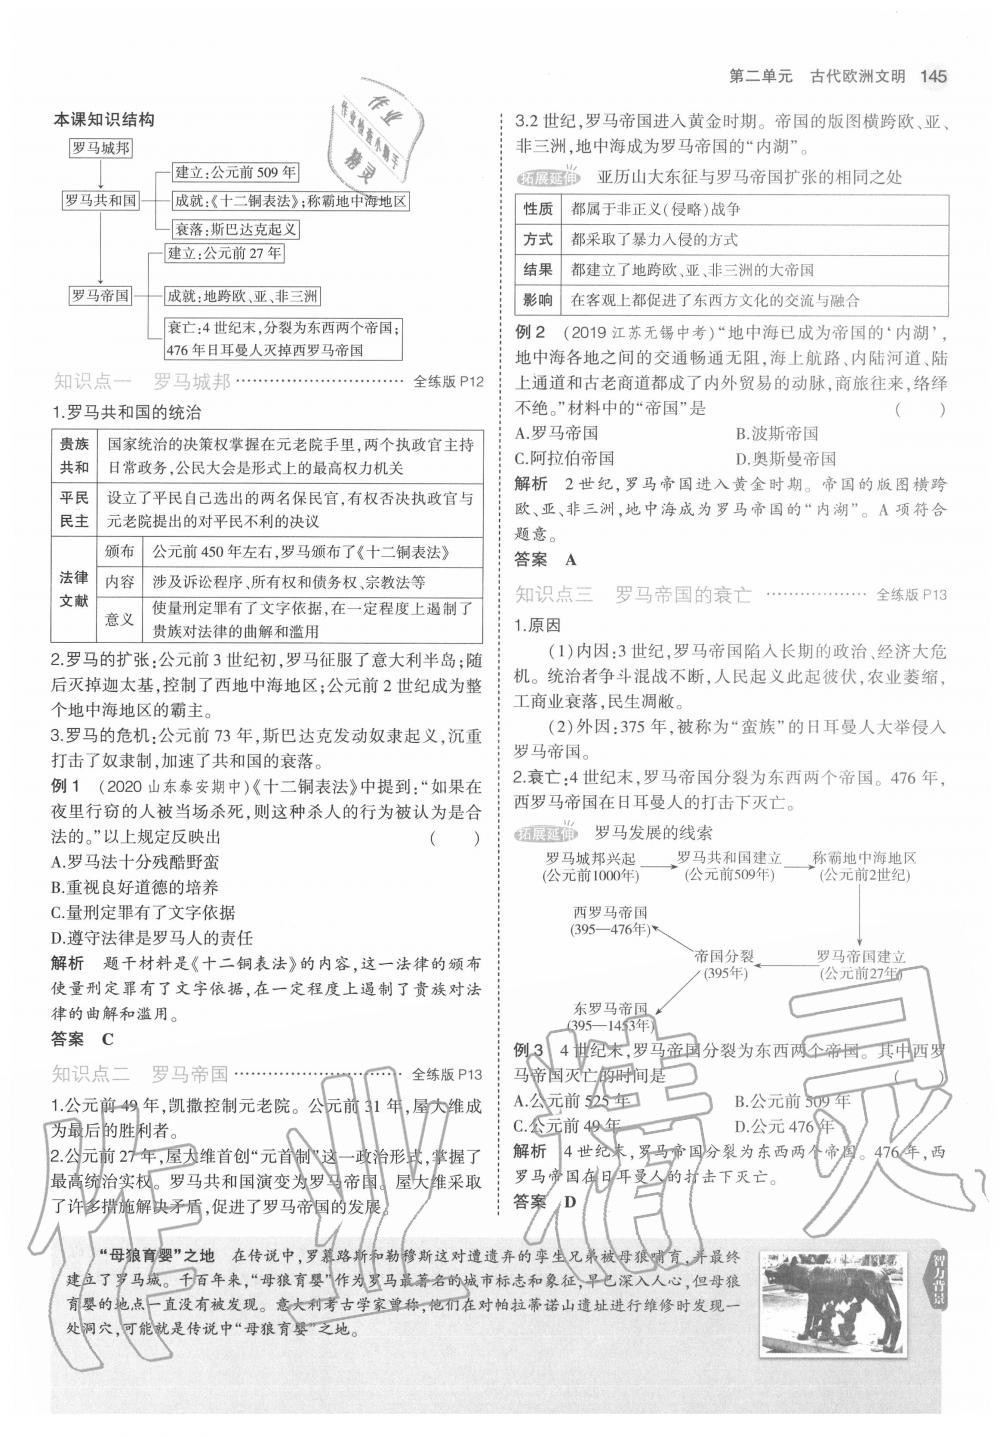 第二单元 古代欧洲文明 145
本课知识结构
罗马城邦
罗马共和国
建立:公元前 509 年
成就:《十二铜表法》;称霸地中海地区
衰落:斯巴达克起义
罗马帝国
建立:公元前 27 年
成就:地跨欧、亚、非三洲
衰亡:4 世纪末,分裂为东西两个帝国;
476 年日耳曼人灭掉西罗马帝国
知识点一 罗马城邦 ………………………… 全练版 P12
1.罗马共和国的统治
贵族
共和
国家统治的决策权掌握在元老院手里,两个执政官主持
日常政务,公民大会是形式上的最高权力机关
平民
民主
设立了平民自己选出的两名保民官,有权否决执政官与
元老院提出的对平民不利的决议
法律
文献
颁布 公元前 450 年左右,罗马颁布了《十二铜表法》
内容 涉及诉讼程序、所有权和债务权、宗教法等
意义
使量刑定罪有了文字依据,在一定程度上遏制了
贵族对法律的曲解和滥用
2.罗马的扩张:公元前 3 世纪初,罗马征服了意大利半岛;随
后灭掉迦太基,控制了西地中海地区;公元前 2 世纪成为整
个地中海地区的霸主。
3.罗马的危机:公元前 73 年,斯巴达克发动奴隶起义,沉重
打击了奴隶制,加速了共和国的衰落。
例 1 (2020 山东泰安期中)《十二铜表法》中提到:“如果在
夜里行窃的人被当场杀死,则这种杀人的行为被认为是合
法的。”以上规定反映出 ( )
A.罗马法十分残酷野蛮
B.重视良好道德的培养
C.量刑定罪有了文字依据
D.遵守法律是罗马人的责任
解析 题干材料是《十二铜表法》的内容,这一法律的颁布
使量刑定罪有了文字依据,在一定程度上遏制了贵族对法
律的曲解和滥用。
答案 C
知识点二 罗马帝国 ………………………… 全练版 P13
1.公元前 49 年,凯撒控制元老院。公元前 31 年,屋大维成
为最后的胜利者。
2.公元前 27 年,屋大维首创“元首制”这一政治形式,掌握了
最高统治实权。罗马共和国演变为罗马帝国。屋大维采取
了许多措施解决矛盾,促进了罗马帝国的发展。
3.2 世纪,罗马帝国进入黄金时期。帝国的版图横跨欧、亚、
非三洲,地中海成为罗马帝国的“内湖”。
拓展延伸 亚历山大东征与罗马帝国扩张的相同之处
性质 都属于非正义(侵略)战争
方式 都采取了暴力入侵的方式
结果 都建立了地跨欧、亚、非三洲的大帝国
影响 在客观上都促进了东西方文化的交流与融合
例 2 (2019 江苏无锡中考)“地中海已成为帝国的‘内湖’,
地中海各地之间的交通畅通无阻,海上航路、内陆河道、陆
上通道和古老商道都成了内外贸易的动脉,商旅往来,络绎
不绝。”材料中的“帝国”是 ( )
A.罗马帝国 B.波斯帝国
C.阿拉伯帝国 D.奥斯曼帝国
解析 2 世纪,罗马帝国进入黄金时期。帝国的版图横跨
欧、亚、非三洲,地中海成为罗马帝国的“内湖”。A 项符合
题意。
答案 A
知识点三 罗马帝国的衰亡 ……………… 全练版 P13
1.原因
(1)内因:3 世纪,罗马帝国陷入长期的政治、经济大危
机。统治者争斗混战不断,人民起义此起彼伏,农业萎缩,
工商业衰落,民生凋敝。
(2)外因:375 年,被称为“蛮族”的日耳曼人大举侵入
罗马帝国。
2.衰亡:4 世纪末,罗马帝国分裂为东西两个帝国。476 年,
西罗马帝国在日耳曼人的打击下灭亡。
拓展延伸 罗马发展的线索
罗马城邦兴起 罗马共和国建立 称霸地中海地区
(公元前1000年) (公元前509年) (公元前2世纪)
西罗马帝国
(395—476年)
帝国分裂 罗马帝国建立
(395年) (公元前27年)
东罗马帝国
(395—1453年)
例 3 4 世纪末,罗马帝国分裂为东西两个帝国。其中西罗
马帝国灭亡的时间是 ( )
A.公元前 525 年 B.公元前 509 年
C.公元前 49 年 D.公元 476 年
解析 4 世纪末,罗马帝国分裂为东西两个帝国。476 年,西
罗马帝国在日耳曼人的打击下灭亡。
答案 D
“母狼育婴”之地 在传说中,罗慕路斯和勒穆斯这对遭遗弃的孪生兄弟被母狼哺育,并最终
建立了罗马城。千百年来,“母狼育婴”作为罗马最著名的城市标志和象征,早已深入人心,但母狼
育婴的地点一直没有被发现。意大利考古学家曾称,他们在对帕拉蒂诺山遗址进行维修时发现一
处洞穴,可能就是传说中“母狼育婴”之地。
智力背景
作业
作业检查小助手
精灵
作业精灵